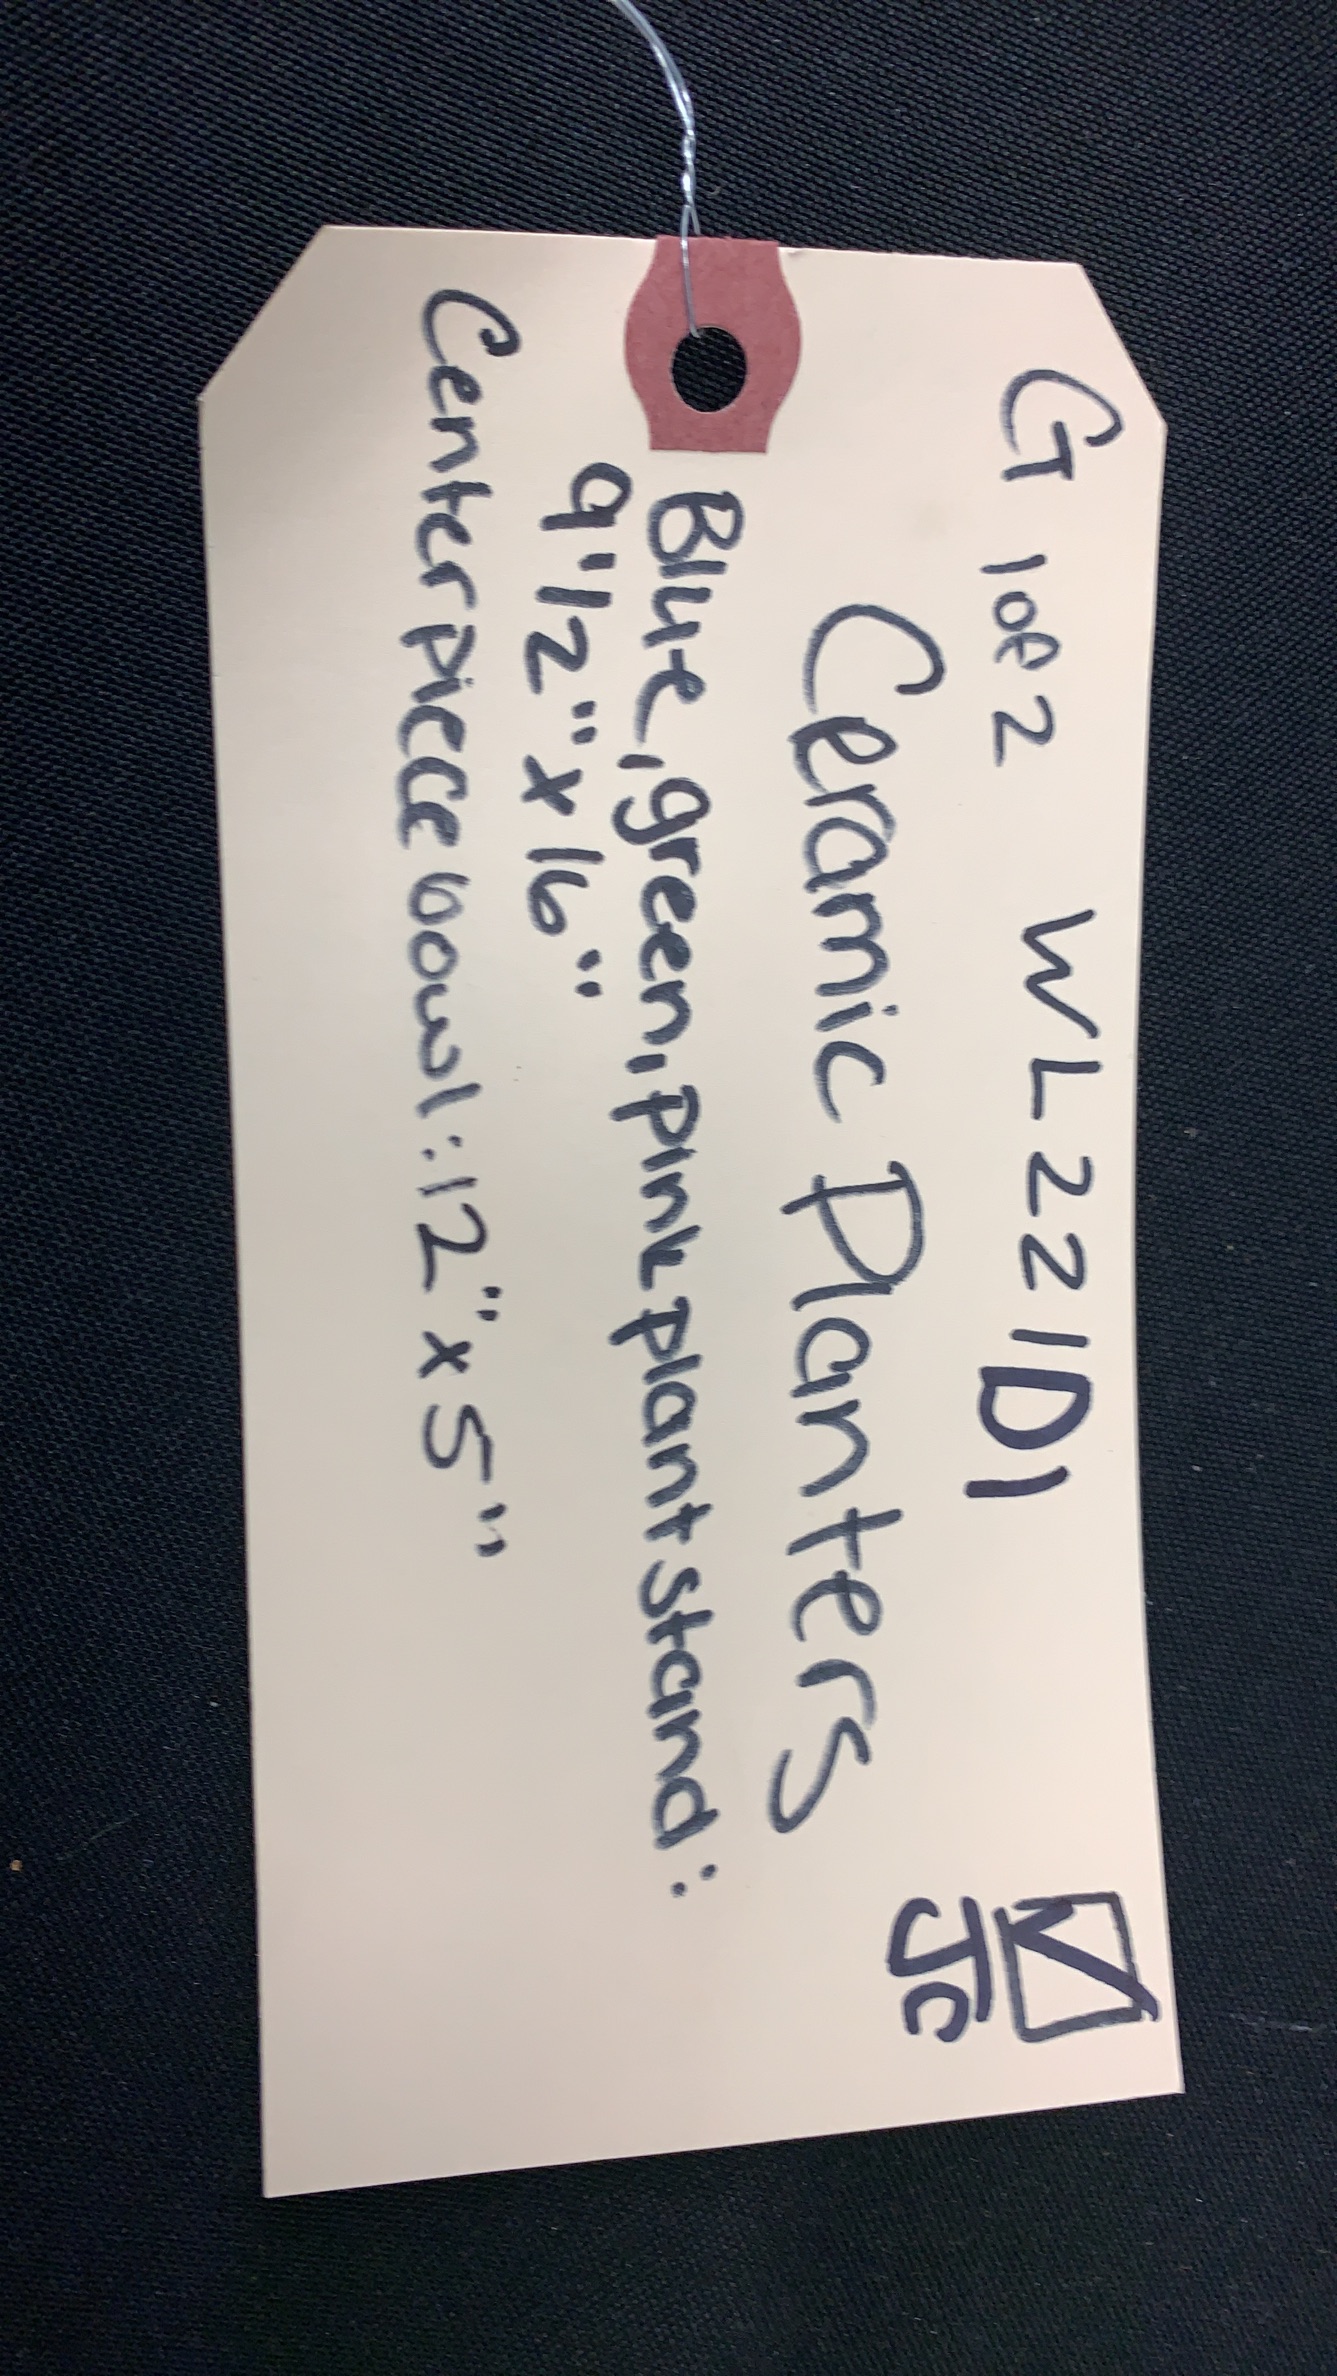 G 1 of 2 WL221D1
JC
Ceramic Planters
Blue, green, pink plant stand:
9'12" x 16"
Centerpiece bowl: 12" x 5"